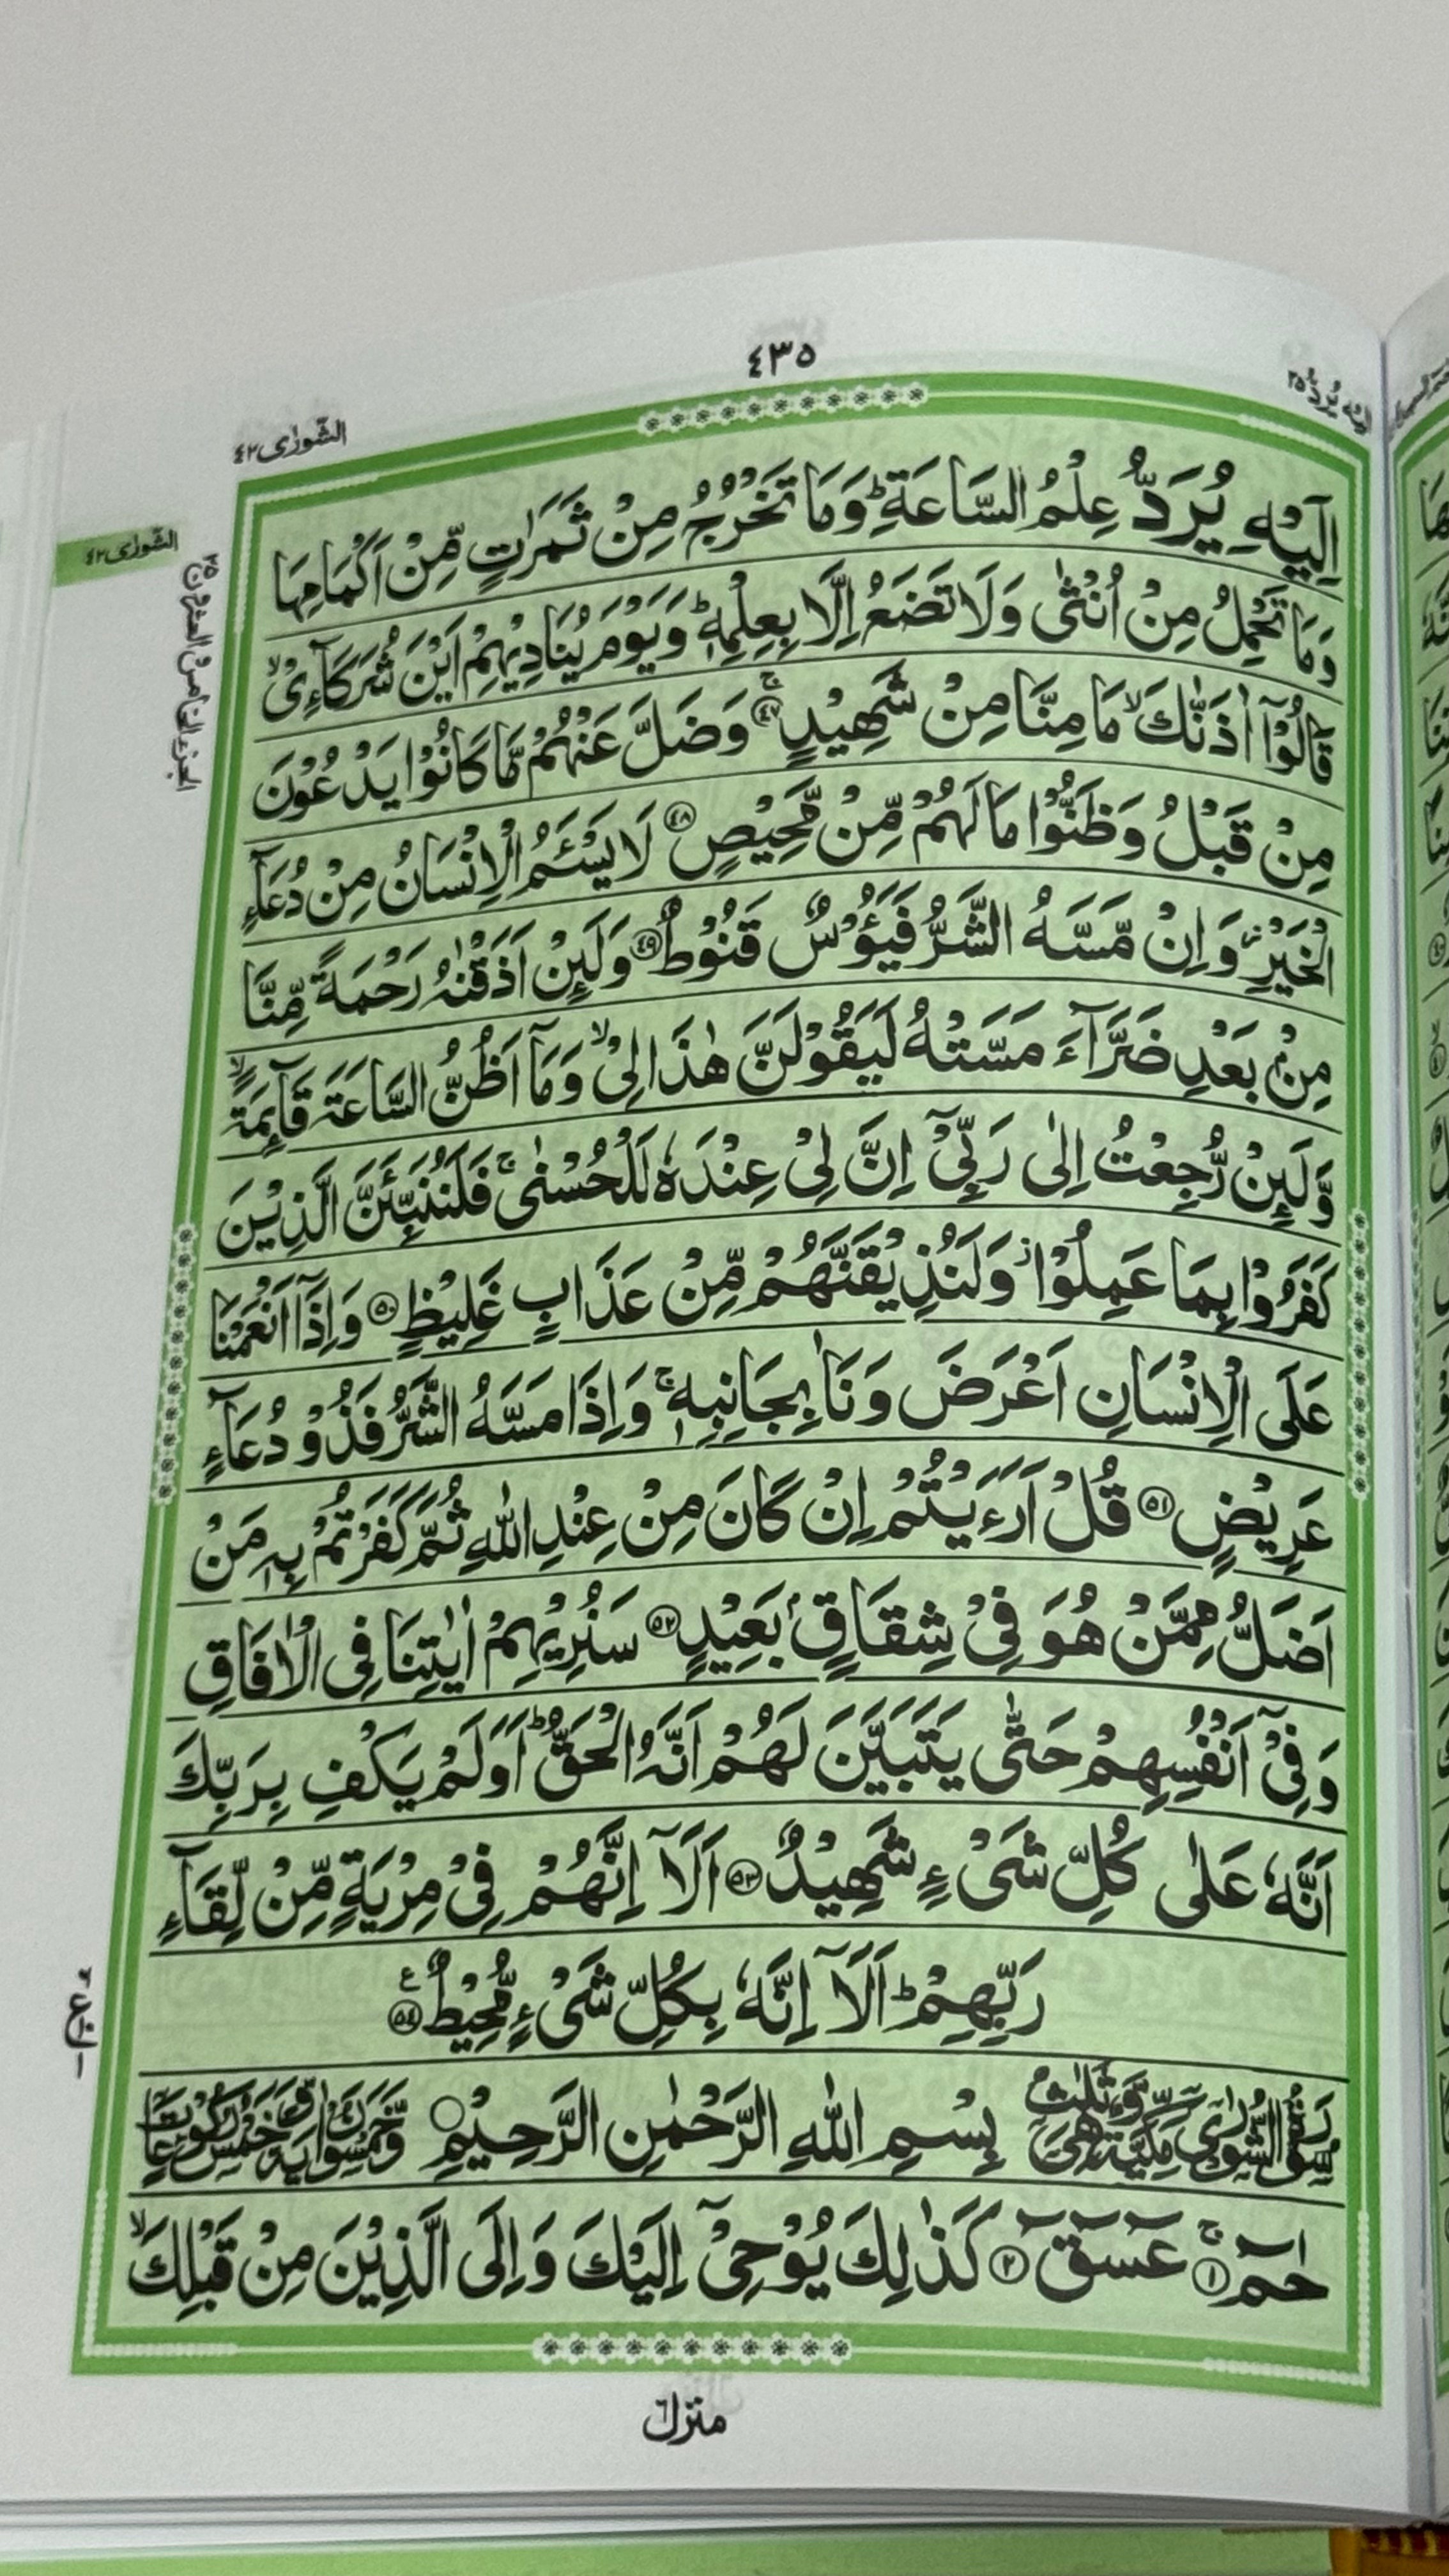 ٤٣٥
الشورٰی ٤٢
اليه يرد ٢٥
الشورٰی ٤٢
الجزء الخامس والعشرون ٢٥
اِلَيْهِ يُرَدُّ عِلْمُ السَّاعَةِ ؕ وَمَا تَخْرُجُ مِنْ ثَمَرٰتٍ مِّنْ اَكْمَامِهَا
وَمَا تَحْمِلُ مِنْ اُنْثٰى وَلَا تَضَعُ اِلَّا بِعِلْمِهٖ ؕ وَيَوْمَ يُنَادِيْهِمْ اَيْنَ شُرَكَآءِىْ ۙ
قَالُوْٓا اٰذَنّٰكَ ۙ مَا مِنَّا مِنْ شَهِيْدٍ ۚ ٤٧ وَضَلَّ عَنْهُمْ مَّا كَانُوْا يَدْعُوْنَ
مِنْ قَبْلُ وَظَنُّوْا مَا لَهُمْ مِّنْ مَّحِيْصٍ ٤٨ لَا يَسْـَٔمُ الْاِنْسَانُ مِنْ دُعَآءِ
الْخَيْرِ ۫ وَاِنْ مَّسَّهُ الشَّرُّ فَيَـُٔوْسٌ قَنُوْطٌ ٤٩ وَلَئِنْ اَذَقْنٰهُ رَحْمَةً مِّنَّا
مِنْۢ بَعْدِ ضَرَّآءَ مَسَّتْهُ لَيَقُوْلَنَّ هٰذَا لِىْ ۙ وَمَآ اَظُنُّ السَّاعَةَ قَآئِمَةً ۙ
وَّلَئِنْ رُّجِعْتُ اِلٰى رَبِّىْٓ اِنَّ لِىْ عِنْدَهٗ لَلْحُسْنٰى ۚ فَلَنُنَبِّئَنَّ الَّذِيْنَ
كَفَرُوْا بِمَا عَمِلُوْا ۫ وَلَنُذِيْقَنَّهُمْ مِّنْ عَذَابٍ غَلِيْظٍ ٥٠ وَاِذَآ اَنْعَمْنَا
عَلَى الْاِنْسَانِ اَعْرَضَ وَنَاٰ بِجَانِبِهٖ ۚ وَاِذَا مَسَّهُ الشَّرُّ فَذُوْ دُعَآءٍ
عَرِيْضٍ ٥١ قُلْ اَرَءَيْتُمْ اِنْ كَانَ مِنْ عِنْدِ اللّٰهِ ثُمَّ كَفَرْتُمْ بِهٖ مَنْ
اَضَلُّ مِمَّنْ هُوَ فِىْ شِقَاقٍۢ بَعِيْدٍ ٥٢ سَنُرِيْهِمْ اٰيٰتِنَا فِى الْاٰفَاقِ
وَفِىْٓ اَنْفُسِهِمْ حَتّٰى يَتَبَيَّنَ لَهُمْ اَنَّهُ الْحَقُّ ؕ اَوَلَمْ يَكْفِ بِرَبِّكَ
اَنَّهٗ عَلٰى كُلِّ شَىْءٍ شَهِيْدٌ ٥٣ اَلَآ اِنَّهُمْ فِىْ مِرْيَةٍ مِّنْ لِّقَآءِ
رَبِّهِمْ ؕ اَلَآ اِنَّهٗ بِكُلِّ شَىْءٍ مُّحِيْطٌ ٥٤ ع
سُوْرَةُ الشُّوْرٰى مَكِّيَّةٌ وَّهِىَ ثَلٰثٌ بِسْمِ اللّٰهِ الرَّحْمٰنِ الرَّحِيْمِ وَّخَمْسُوْنَ اٰيَةً وَّخَمْسُ رُكُوْعَاتٍ
حٰمٓ ۚ ١ عٓسٓقٓ ٢ كَذٰلِكَ يُوْحِىْٓ اِلَيْكَ وَاِلَى الَّذِيْنَ مِنْ قَبْلِكَ ۙ
منزل ٦